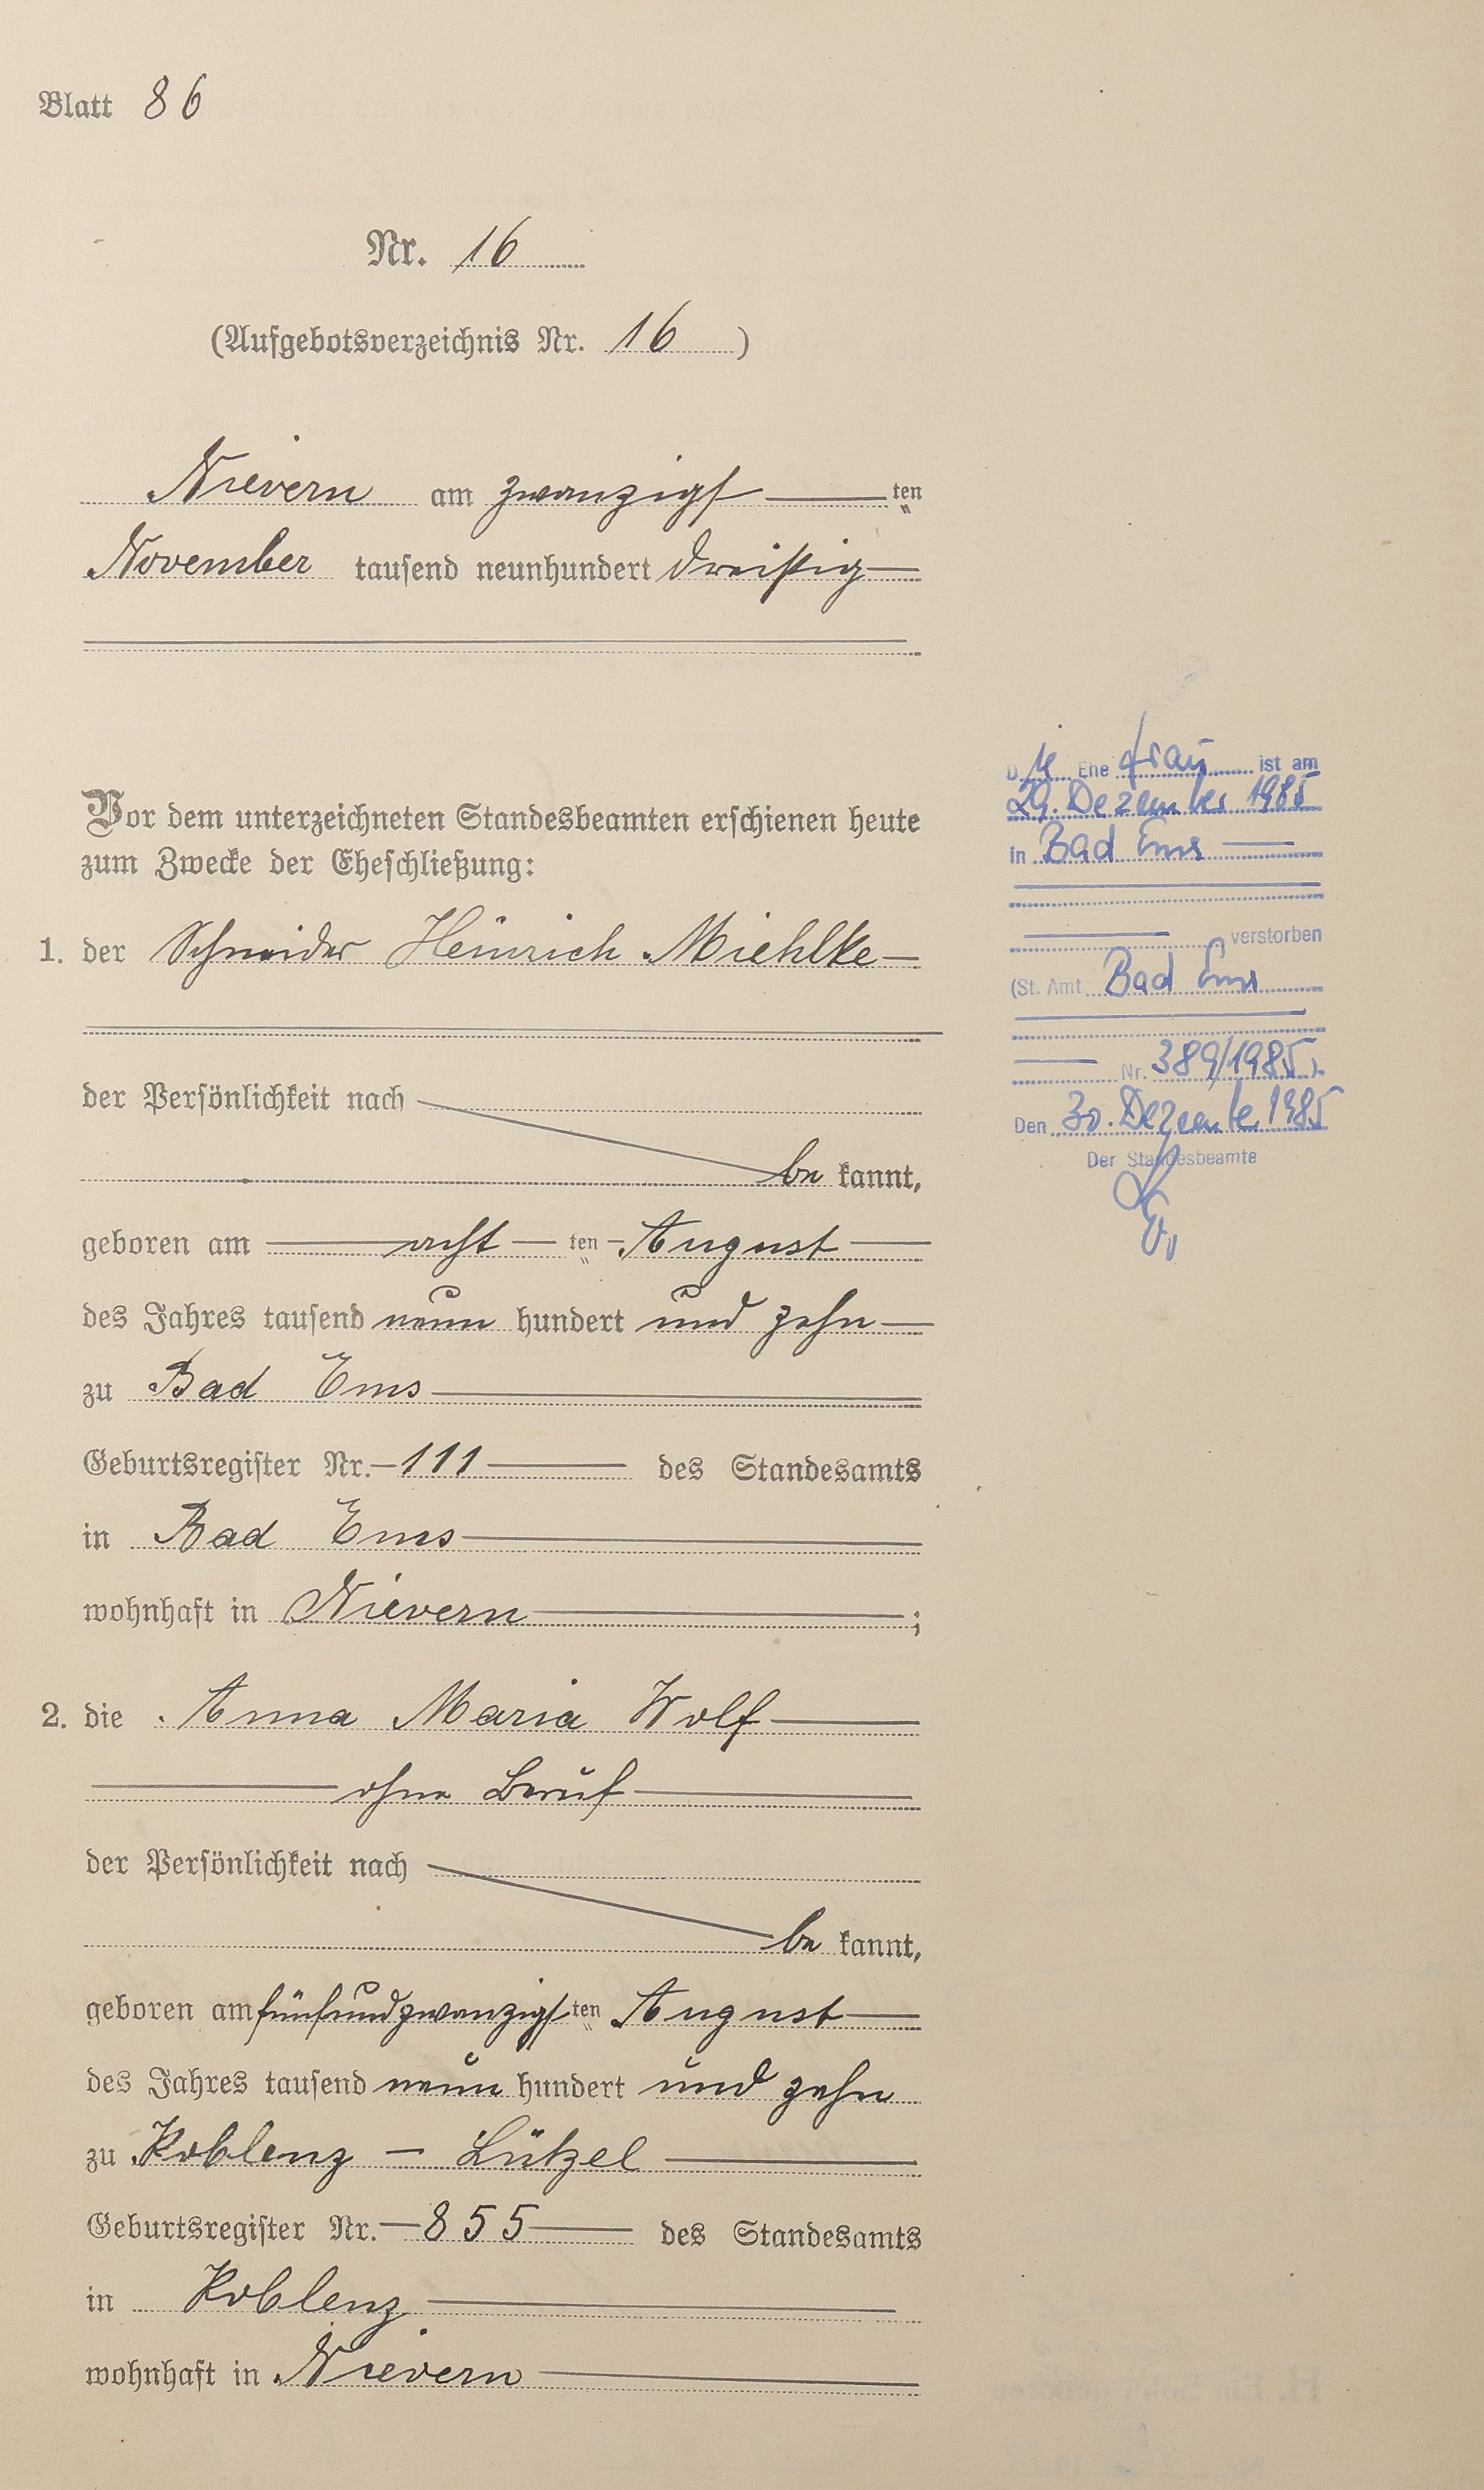 Blatt 86
Nr. 16
(Aufgebotsverzeichnis Nr. 16)
Nievern am zwanzigsten
November tausend neunhundert dreißig
Vor dem unterzeichneten Standesbeamten erschienen heute
zum Zwecke der Eheschließung:
1. der Schneider Heinrich Miehlke
der Persönlichkeit nach
bekannt,
geboren am achten August
des Jahres tausend neun hundert und zehn
zu Bad Ems
Geburtsregister Nr. 111 des Standesamts
in Bad Ems
wohnhaft in Nievern;
2. die Anna Maria Wolf
ohne Beruf
der Persönlichkeit nach
bekannt,
geboren am fünfundzwanzigsten August
des Jahres tausend neun hundert und zehn
zu Koblenz - Lützel
Geburtsregister Nr. 855 des Standesamts
in Koblenz
wohnhaft in Nievern
Die Ehefrau ist am
29. Dezember 1985
in Bad Ems
verstorben
(St. Amt Bad Ems
Nr. 389/1985).
Den 30. Dezember 1985
Der Standesbeamte